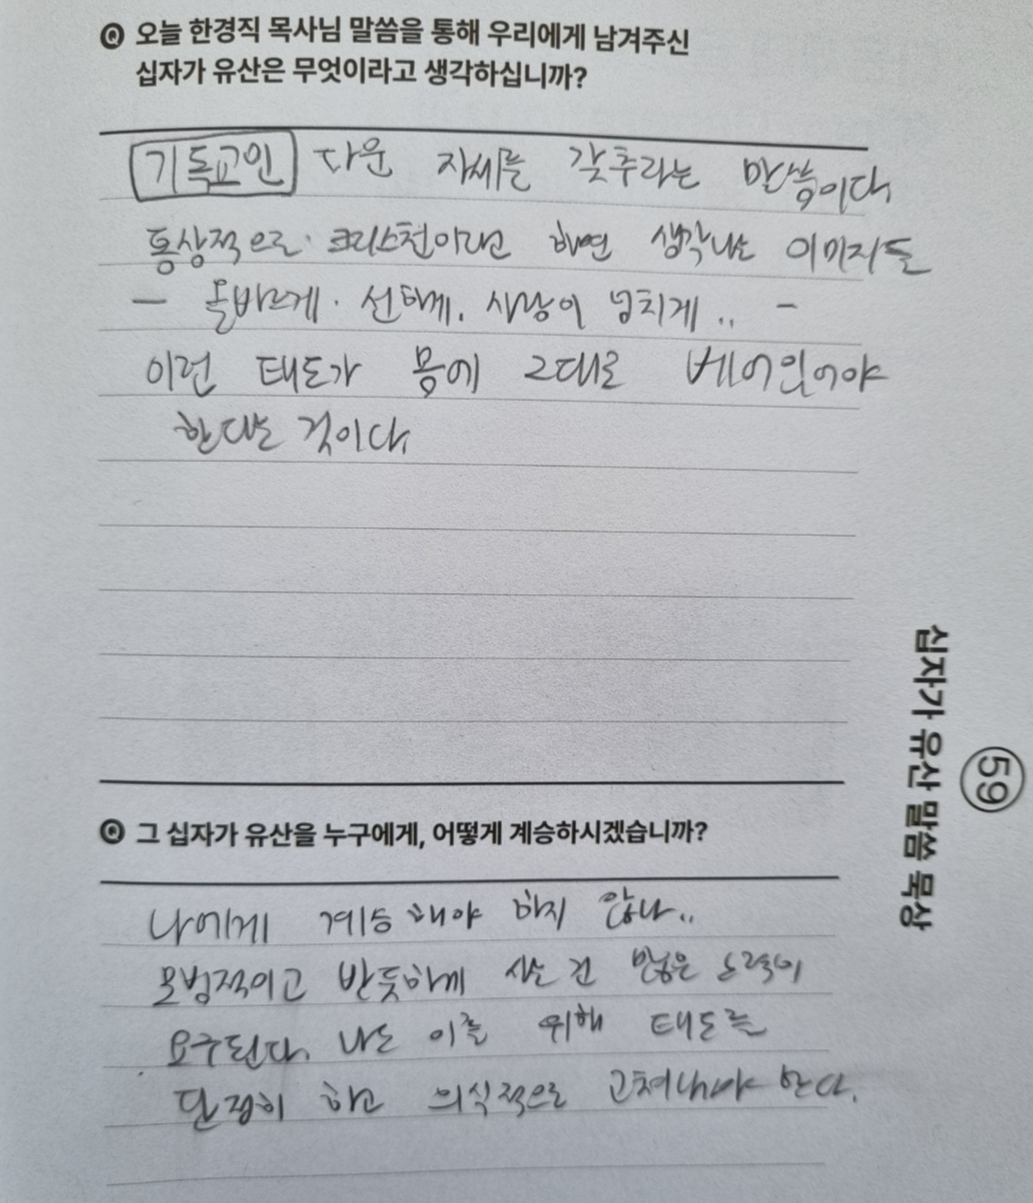 Q 오늘 한경직 목사님 말씀을 통해 우리에게 남겨주신
십자가 유산은 무엇이라고 생각하십니까?
기독교인 다운 자세를 갖추라는 말씀이다
통상적으로 크리스천이라면 하면 생각나는 이미지들
- 올바르게. 선하게. 사랑이 넘치게.. -
이런 태도가 몸에 그대로 베어있어야
한다는 것이다
Q 그 십자가 유산을 누구에게, 어떻게 계승하시겠습니까?
나에게 계승해야 하지 않나..
모범적이고 반듯하게 사는 건 많은 노력이
요구된다. 나도 이를 위해 태도를
단정히 하고 의식적으로 고쳐나가야 한다.
십자가 유산 말씀 묵상
59